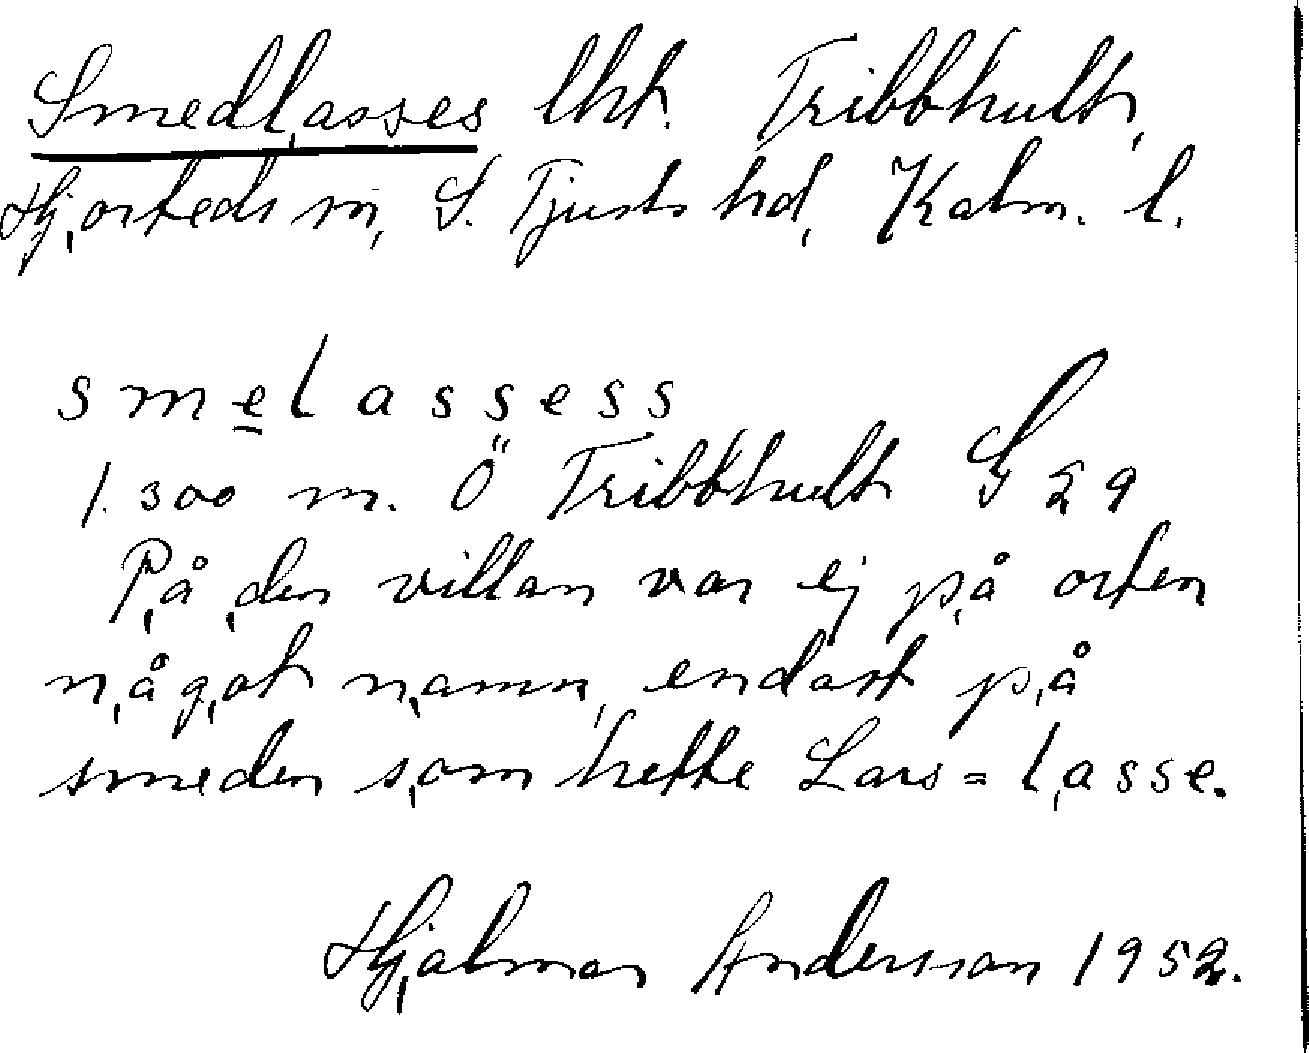 Smedlasses lht. Tribbhult,
Hjorteds sn, S. Tjusts hd, Kalm. l.
smelassess
1.300 m. Ö Tribbhult G 29
På den villan var ej på orten
något namn, endast på
smeden som hette Lars = lasse.
Hjalmar Andersson 1952.